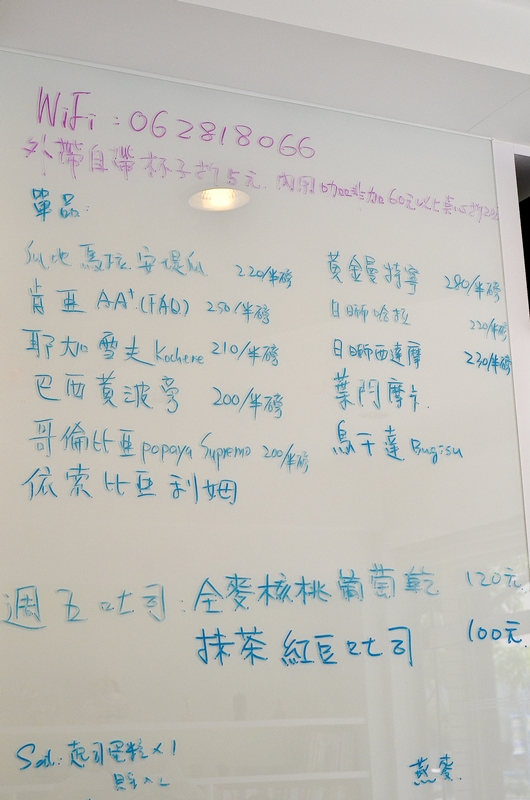 WiFi : 062818066
外帶自帶杯子折5元. 內用咖啡加60元以上
單品:
瓜地馬拉安提瓜 220/半磅
肯亞 AA⁺.(FAQ) 250/半磅
耶加雪夫 Kochere 210/半磅
巴西黃波旁 200/半磅
哥倫比亞 popaya Supremo 200/半磅
依索比亞利姆
黃金曼特寧 280/半磅
日曬哈拉 220/半磅
日曬西達摩 230/半磅
葉門摩卡.
烏干達 Bugisu
週五吐司: 全麥核桃葡萄乾 120元
抹茶紅豆吐司 100元.
Sat.: 起司蛋糕 x 1
燕麥.